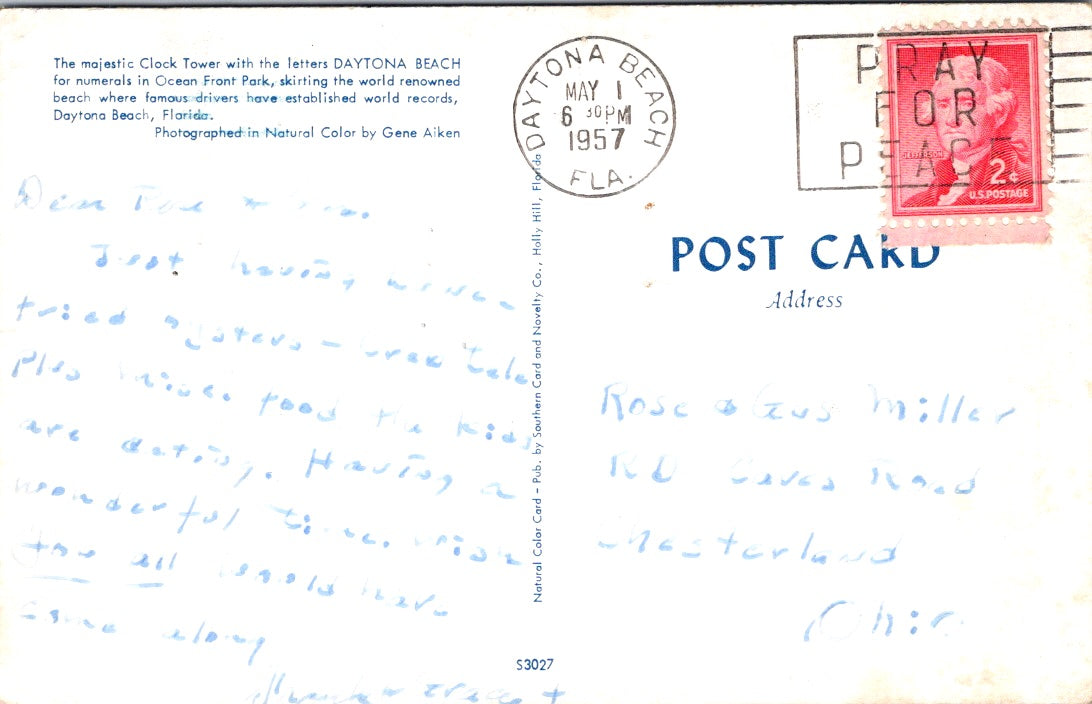 The majestic Clock Tower with the letters DAYTONA BEACH
for numerals in Ocean Front Park, skirting the world renowned
beach where famous drivers have established world records,
Daytona Beach, Florida.
Photographed in Natural Color by Gene Aiken
DAYTONA BEACH
MAY 1
6 30 PM
1957
FLA.
PRAY
FOR
PEACE
JEFFERSON
2¢
U.S. POSTAGE
POST CARD
Address
Dear
Just having
tried oysters –
Plus food the kids
are eating. Having a
wonderful time. Wish
you all would have
come along
Rose & Gus Miller
RD Caves Road
Chesterland
Ohio
Natural Color Card – Pub. by Southern Card and Novelty Co., Holly Hill, Florida
S3027